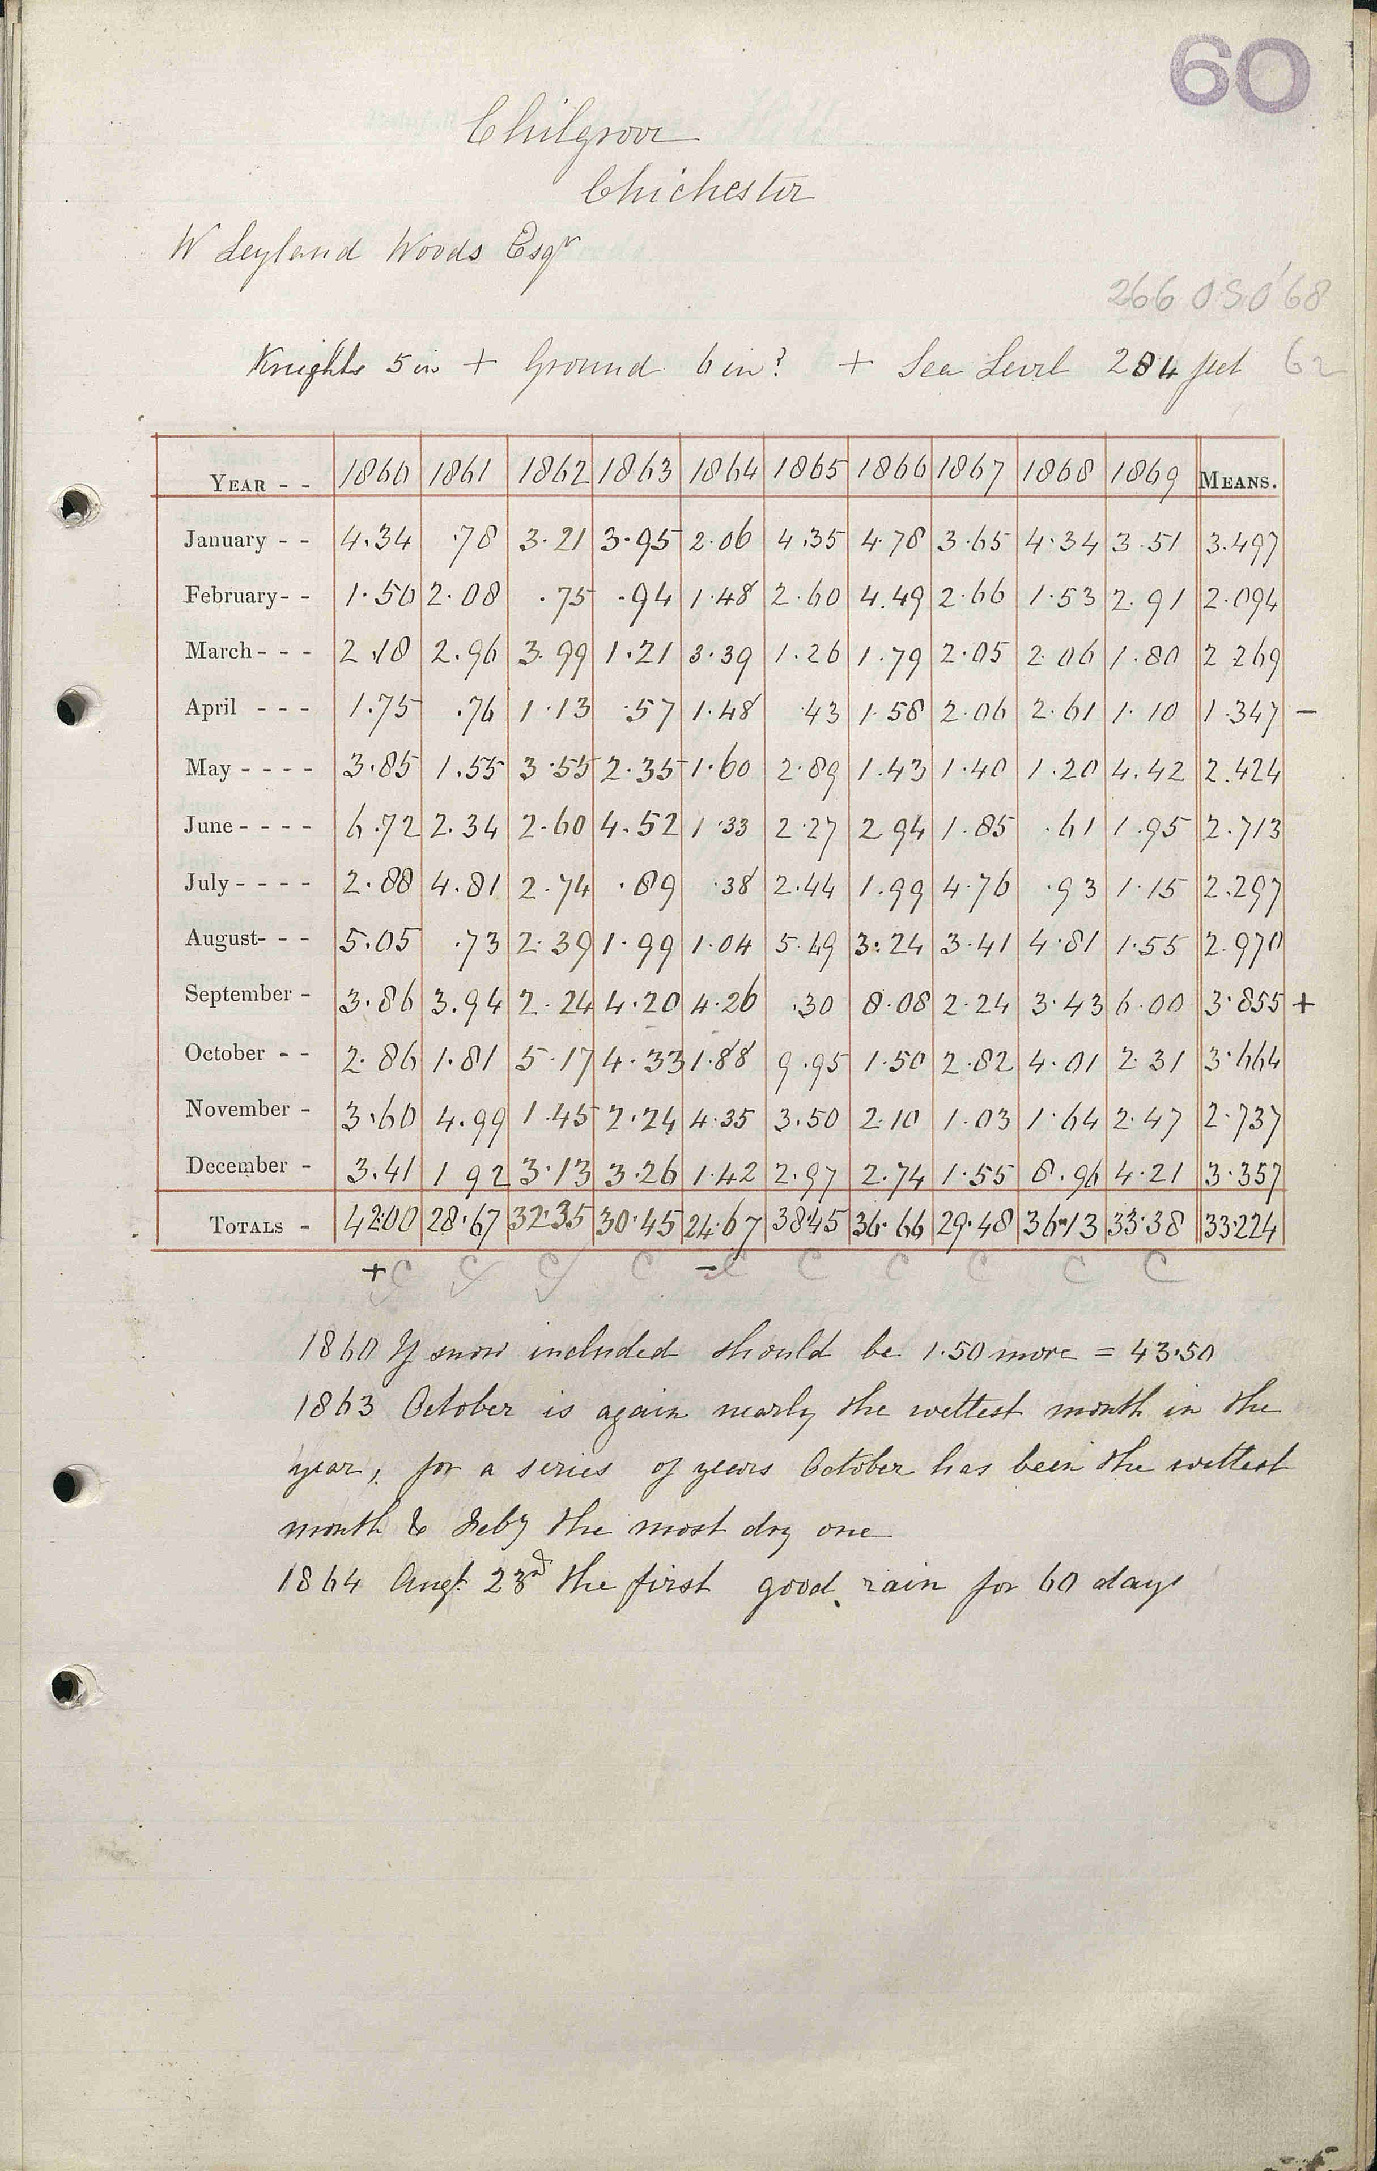 60
Chilgrove
Chichester
W Leyland Woods Esqr
266 OSO '68
Knights 5 in + Ground 6 in? + Sea Level 284 feet 62
YEAR - - 1860 1861 1862 1863 1864 1865 1866 1867 1868 1869 MEANS.
January - - 4.34 .78 3.21 3.95 2.06 4.35 4.78 3.65 4.34 3.51 3.497
February - - 1.50 2.08 .75 .94 1.48 2.60 4.49 2.66 1.53 2.91 2.094
March - - - 2.18 2.96 3.99 1.21 3.39 1.26 1.79 2.05 2.06 1.80 2.269
April - - - 1.75 .76 1.13 .57 1.48 .43 1.58 2.06 2.61 1.10 1.347 -
May - - - - 3.85 1.55 3.55 2.35 1.60 2.89 1.43 1.40 1.20 4.42 2.424
June - - - - 6.72 2.34 2.60 4.52 1.33 2.27 2.94 1.85 .61 1.95 2.713
July - - - - 2.88 4.81 2.74 .89 .38 2.44 1.99 4.76 .93 1.15 2.297
August - - - 5.05 .73 2.39 1.99 1.04 5.49 3.24 3.41 4.81 1.55 2.970
September - 3.86 3.94 2.24 4.20 4.26 .30 8.08 2.24 3.43 6.00 3.855 +
October - - 2.86 1.81 5.17 4.33 1.88 9.95 1.50 2.82 4.01 2.31 3.664
November - 3.60 4.99 1.45 2.24 4.35 3.50 2.10 1.03 1.64 2.47 2.737
December - 3.41 1.92 3.13 3.26 1.42 2.97 2.74 1.55 8.96 4.21 3.357
TOTALS - 42.00 28.67 32.35 30.45 24.67 38.45 36.66 29.48 36.13 33.38 33.224
+ C C C C - C C C C C C
1860 If snow included should be 1.50 more = 43.50
1863 October is again nearly the wettest month in the
year, for a series of years October has been the wettest
month & Feby the most dry one
1864 Augt 23rd the first good rain for 60 days